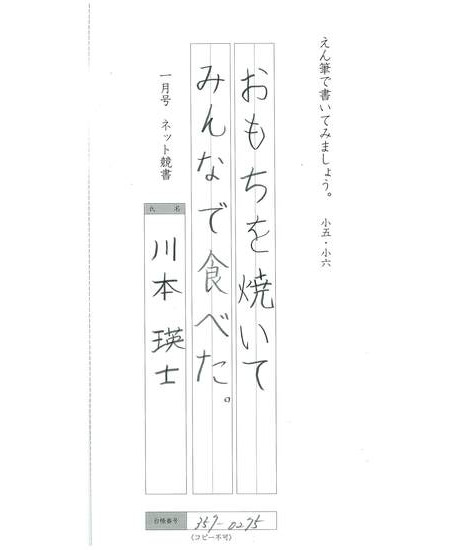 えん筆で書いてみましょう。　小五・小六
おもちを焼いて
みんなで食べた。
一月号　ネット競書
氏　名
川本　瑛士
台帳番号　357-0275
(コピー不可)